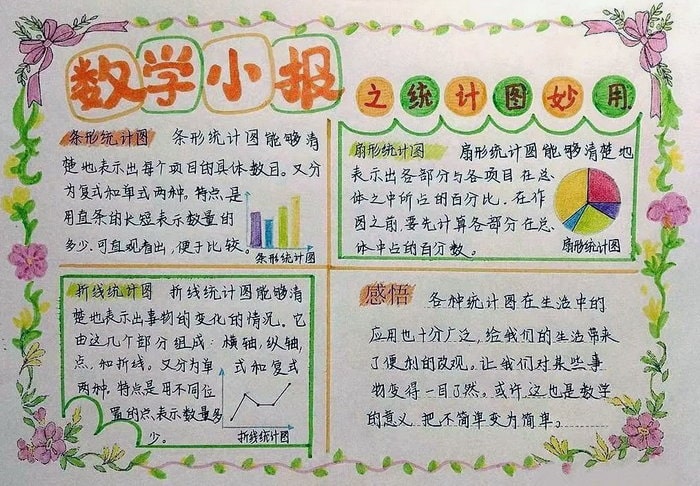 数学小报
之统计图妙用
条形统计图 条形统计图能够清
楚地表示出每个项目的具体数目。又分
为复式和单式两种。特点是
用直条的长短表示数量的
多少.可直观看出,便于比较。
条形统计图
扇形统计图 扇形统计图能够清楚地
表示出各部分与各项目在总
体之中所占的百分比。在作
图之前,要先计算各部分在总
体中占的百分数。
扇形统计图
折线统计图 折线统计图能够清
楚地表示出事物的变化的情况。它
由这几个部分组成:横轴,纵轴,
点,和折线。又分为单式和复式
两种,特点是用不同位
置的点表示数量多
少。
折线统计图
感悟 各种统计图在生活中的
应用也十分广泛,给我们的生活带来
了便利的改观。让我们对某些事
物变得一目了然。或许,这也是数学
的意义,把不简单变为简单。